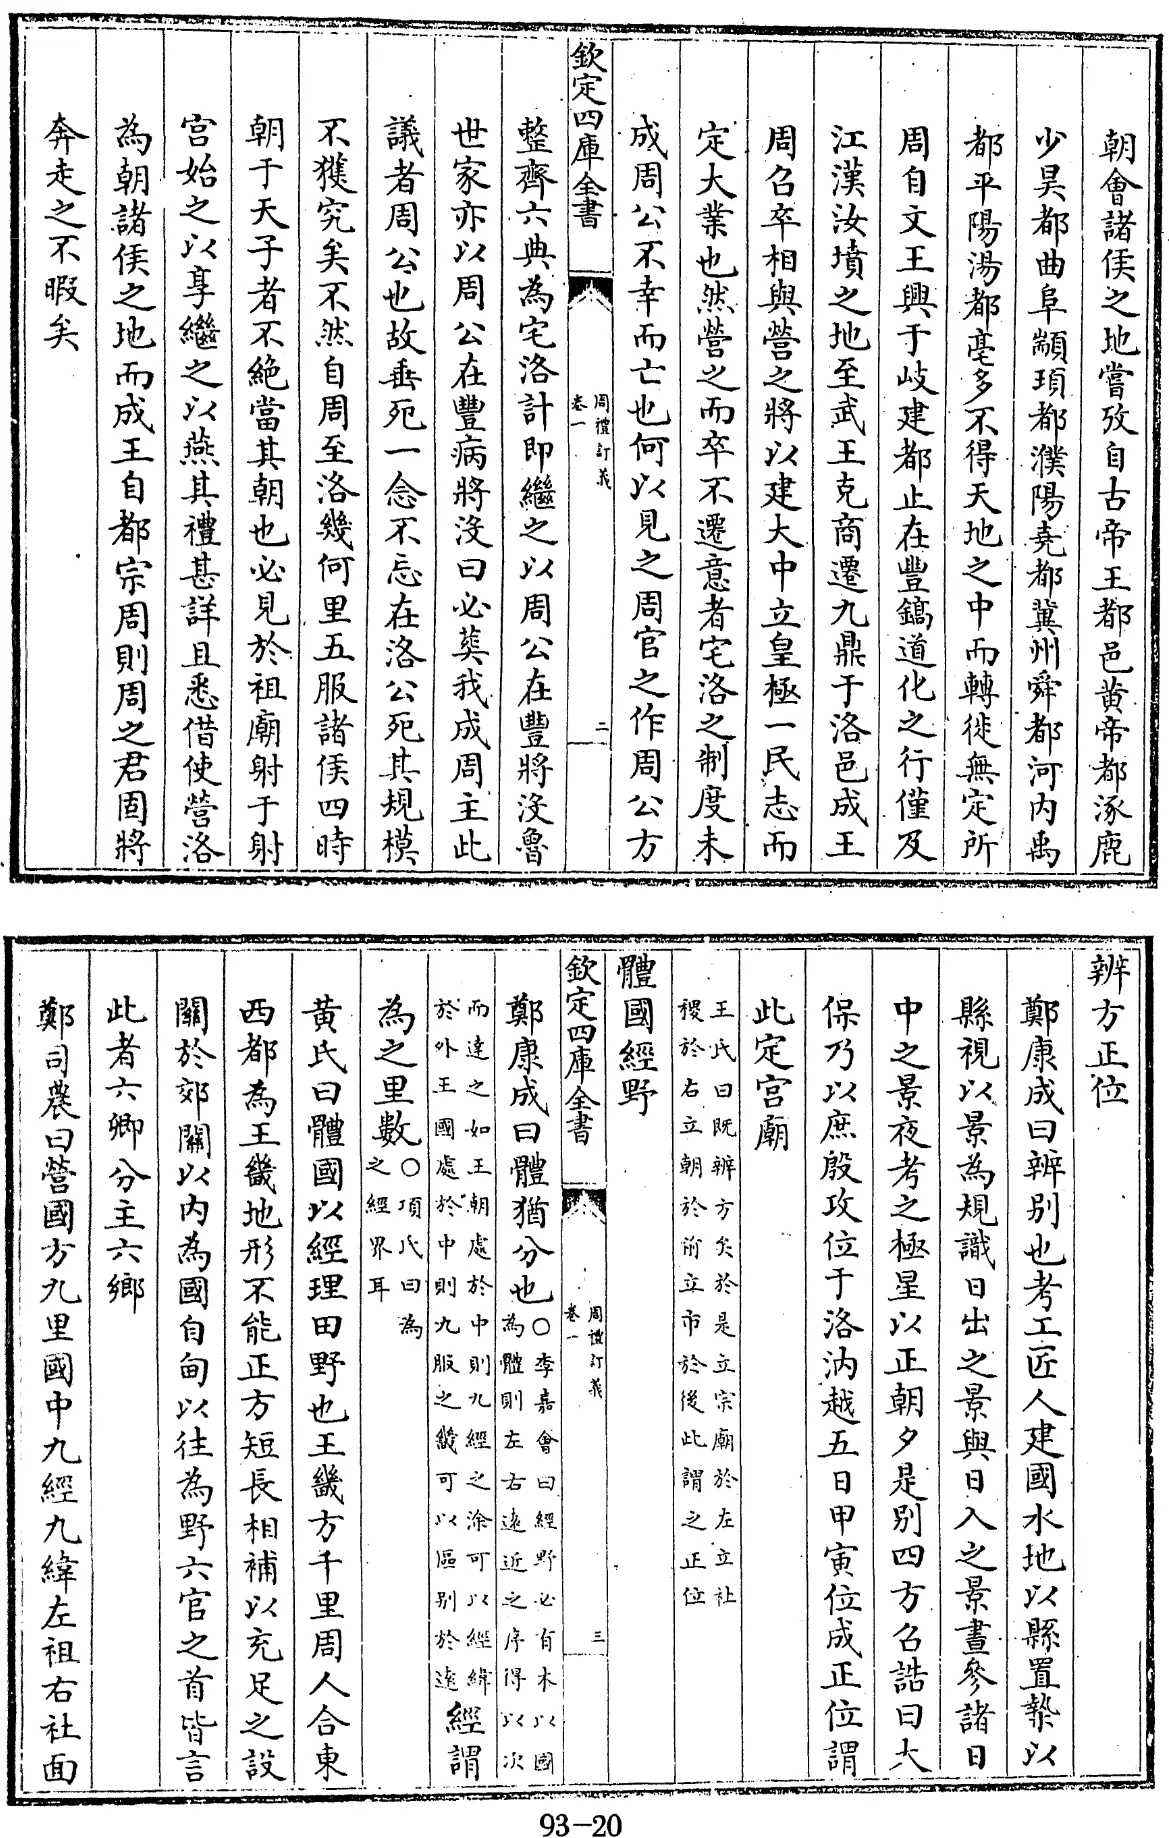 朝會諸侯之地嘗攷自古帝王都邑黄帝都涿鹿
少昊都曲阜顓頊都濮陽堯都冀州舜都河内禹
都平陽湯都亳多不得天地之中而轉徙無定所
周自文王興于岐建都止在豐鎬道化之行僅及
江漢汝墳之地至武王克商遷九鼎于洛邑成王
周召卒相與營之將以建大中立皇極一民志而
定大業也然營之而卒不遷意者宅洛之制度未
成周公不幸而亡也何以見之周官之作周公方
欽定四庫全書
周禮訂義
卷一
二
整齊六典為宅洛計即繼之以周公在豐將沒魯
世家亦以周公在豐病將沒曰必葬我成周主此
議者周公也故垂死一念不忘在洛公死其規模
不獲究矣不然自周至洛幾何里五服諸侯四時
朝于天子者不絶當其朝也必見於祖廟射于射
宫始之以享繼之以燕其禮甚詳且悉借使營洛
為朝諸侯之地而成王自都宗周則周之君固將
奔走之不暇矣
辨方正位
鄭康成曰辨别也考工匠人建國水地以縣置槷以
縣視以景為規識日出之景與日入之景晝參諸日
中之景夜考之極星以正朝夕是别四方召誥曰大
保乃以庶殷攻位于洛汭越五日甲寅位成正位謂
此定宫廟
王氏曰既辨方矣於是立宗廟於左立社
稷於右立朝於前立市於後此謂之正位
體國經野
欽定四庫全書
周禮訂義
卷一
三
鄭康成曰體猶分也○李嘉會曰經野必有本以國
為體則左右遠近之序得以次
而達之如王朝處於中則九經之涂可以經緯
於外王國處於中則九服之畿可以區别於遠
經謂
為之里數○項氏曰為
之經界耳
黄氏曰體國以經理田野也王畿方千里周人合東
西都為王畿地形不能正方短長相補以充足之設
關於郊關以内為國自甸以往為野六官之首皆言
此者六卿分主六鄉
鄭司農曰營國方九里國中九經九緯左祖右社面
93-20